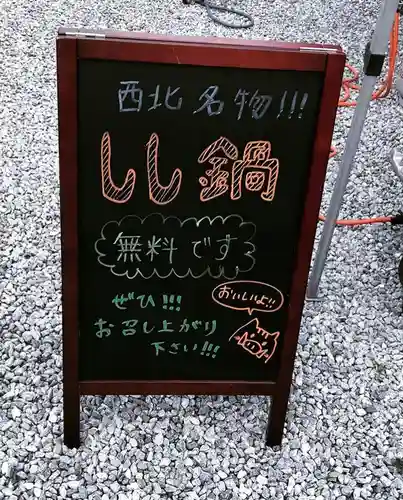 西北名物!!!
しし鍋
無料です
ぜひ!!!
おいしいよ!!
お召し上がり
下さい!!!